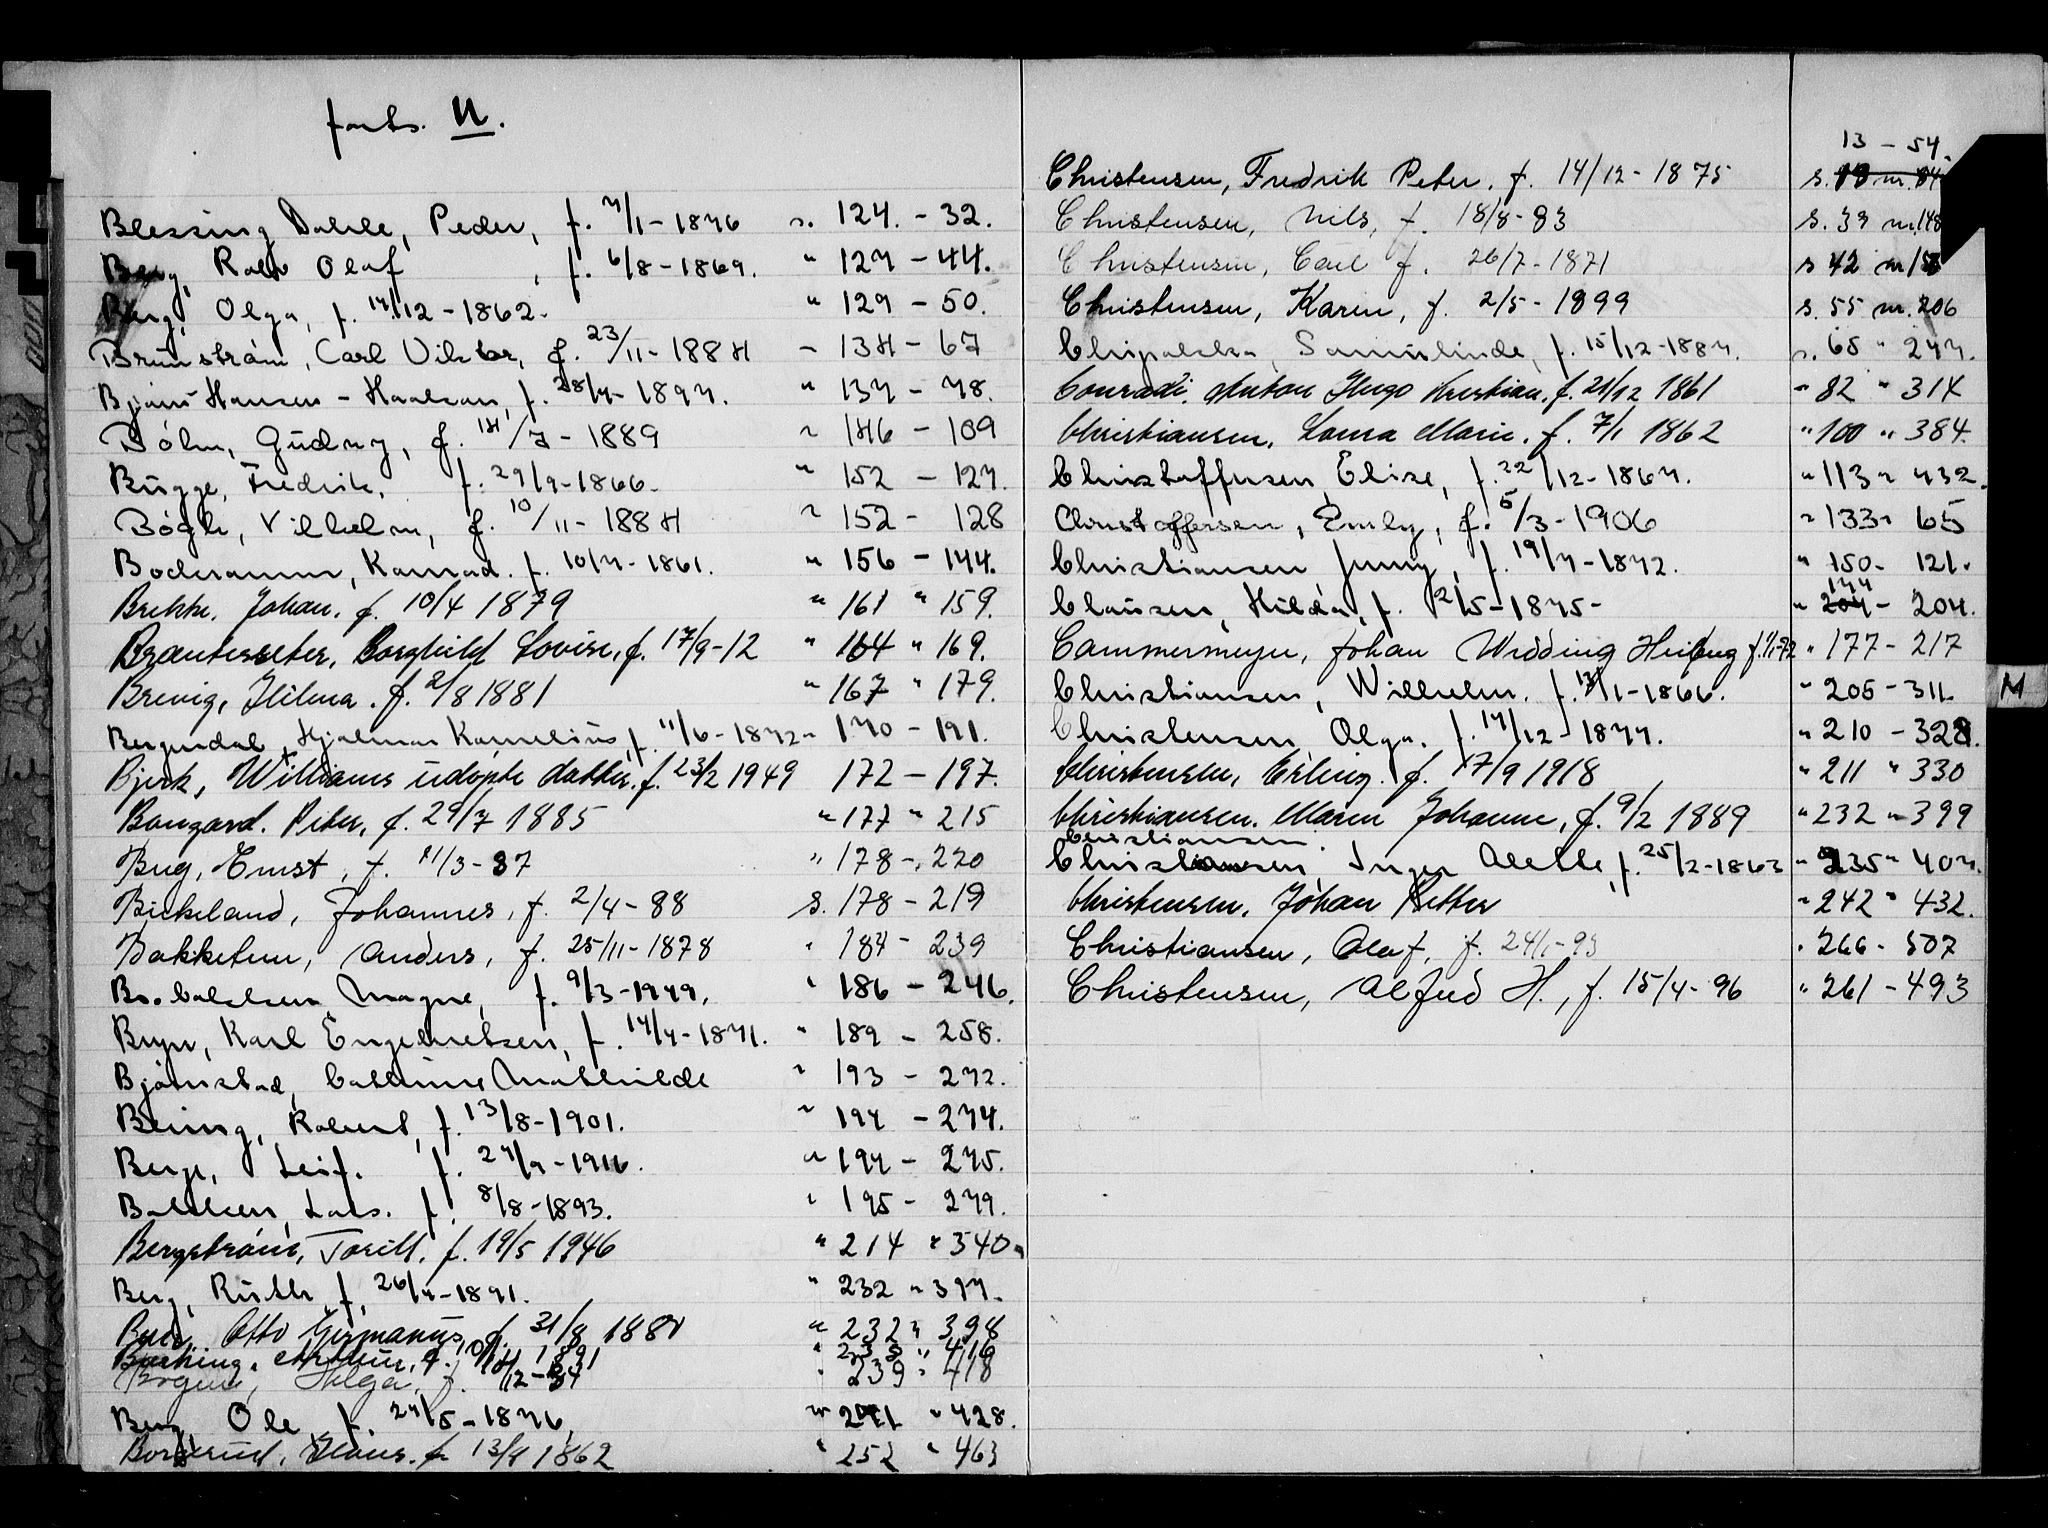 forts. U.
Blessing Dahle, Peder, f. 7/1-1876 s. 124. - 32.
Berg, Rolv Olaf, f. 6/8-1869. " 127 - 44.
Berg, Olga, f. 17/12-1862. " 129 - 50.
Brünström, Carl Viktor, f. 23/11-1884 - 134 - 67
Hansen - Haakon, f. 28/7-1897. " 137 - 78.
Böhm, Gudny, f. 14/7-1889 " 146 - 109
Bugge, Fredrik, f. 29/9-1866. " 152 - 127.
Bögh, Vilhelm, f. 10/11-1884 " 152 - 128
Konrad. f. 10/7-1861. " 156 - 144.
Brekke, Johan. f. 10/4 1879 " 161 " 159.
Brantesseter, Borghild Lovise, f. 17/9-12 " 164 " 169.
Brevig, Hilma. f. 2/8 1881 " 167 " 179.
Bergerdal, Hjalmar Kornelius, f. 11/6-1872 " 170 - 191.
Bjerk, Williams udöpte datter. f. 23/2 1949 172 - 197.
Bangard. Peter, f. 29/7 1885 " 177 " 215
Bug, Ernst, f. 21/3-87 " 178 - 220
Birkeland, Johannes, f. 2/4-88 s. 178 - 219
Bakketun, Anders, f. 25/11-1878 " 184 - 239
Magne, f. 9/3-1949. " 186 - 246.
Bryn, Karl Engebretsen, f. 14/7-1871. " 189 - 258.
Bjørnstad, Cathrine Mathilde " 193 - 272.
Bering, Robert, f. 13/8-1901. " 194 - 274.
Berge, Leif. f. 27/9-1916. " 194 - 275.
Bakken, Lars. f. 8/8-1893. " 195 - 279.
Bergström, Torill, f. 19/5 1946 " 214 " 340
Berg, Ruth f. 26/7-1891. " 232 " 397.
Otto Germanus, f. 31/8 188 " 232 " 398
Arthur, f. 1891 " 416
Bogen, Helga, f. /12-84 " 239 " 418
Berg, Ole f. 27/5-1876, " 241 " 428.
Borgerud, Hans. f. 13/9 1862 " 252 " 463
13 - 54.
Christensen, Fredrik Peter. f. 14/12-1875 s. 19 nr. 84
Christensen, Nils, f. 18/8-83 s. 39 nr. 148
Christensen, Carl f. 26/7-1871 s 42 nr 158
Christensen, Karen, f. 2/5-1899 s. 55 nr. 206
f. 15/12-1887. s. 65 " 247.
Conradi. Anton Hugo Kristian. f. 21/12 1861 " 82 " 314
Christiansen, Laura Marie. f. 7/1 1862 " 100 " 384.
Christoffersen, Elise, f. 22/12-1867. " 113 " 432.
Christoffersen, Emily, f. 5/3-1906 " 133 " 65
Christiansen Jenny, f. 19/7-1872. " 150 - 121.
174
Clausen, Hilda, f. 2/5-1875- " 204 - 204.
Cammermeyer, Johan Widding Heiberg f. 1/1-72 " 177 - 217
Christiansen, Wilhelm. f. 13/1-1866. " 205 - 311.
Christensen Olga, f. 17/12-1877. " 210 - 328.
Christensen, Erling. f. 17/9 1918 " 211 " 330
Christiansen. Maren Johanne, f. 9/2 1889 " 232 " 399
Christiansen.
Christiansen, Inger Alette, f. 25/2-1863 " 235 " 407.
Christensen, Johan Petter " 242 " 432.
Christiansen, Olaf, f. 24/1-93 " 266 - 507
Christensen, Alfred H., f. 15/4-96 " 261 - 493
M